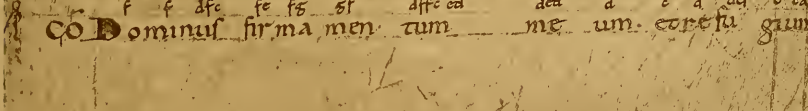 f f dfc fe fg gf dffc ed ded d c d
CO Dominus firma men tum me um. et refu gium